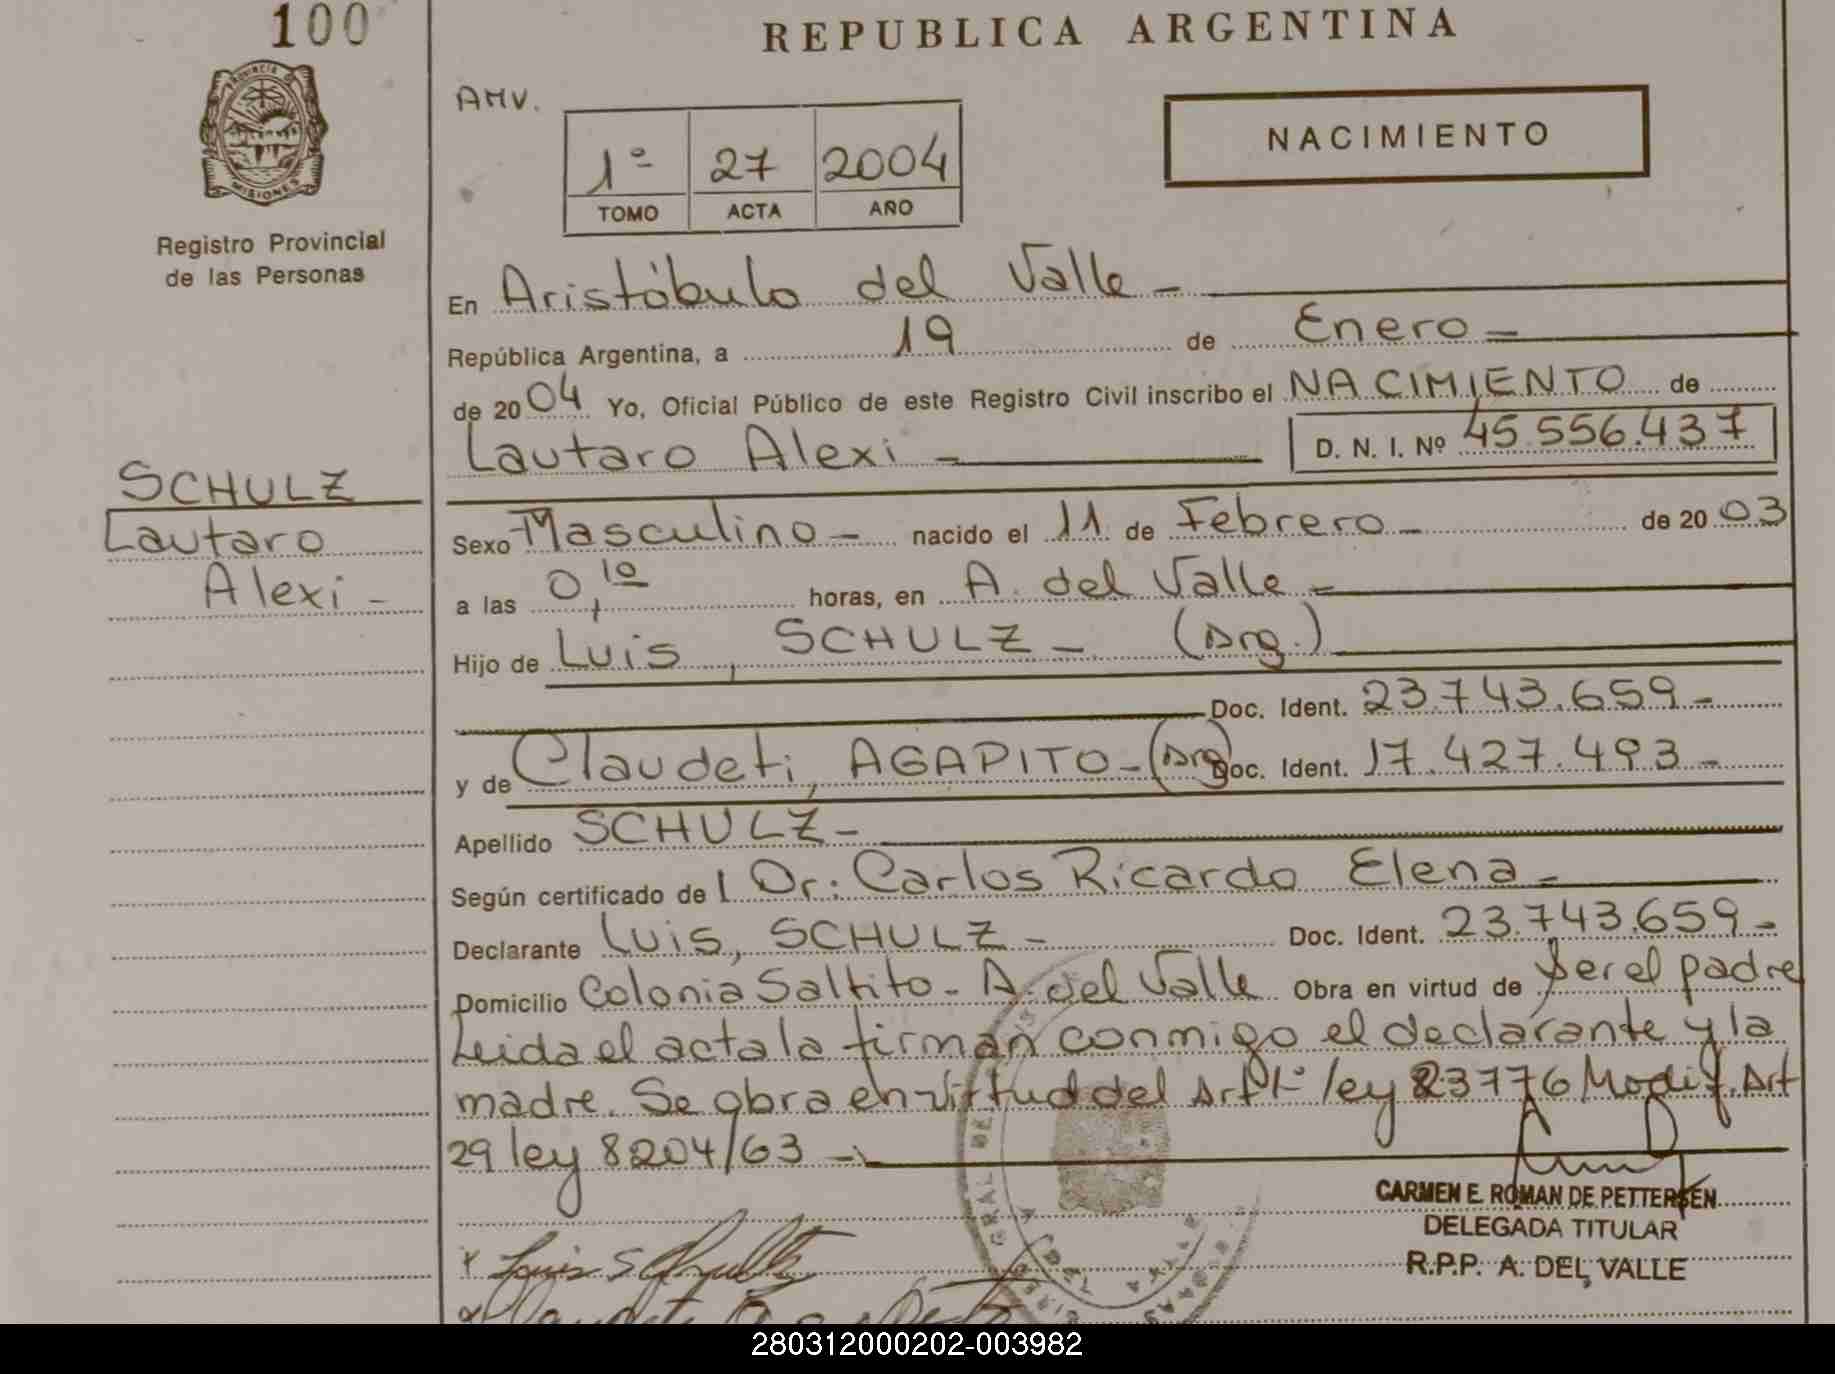 100
REPUBLICA ARGENTINA
PROVINCIA DE
MISIONES
Registro Provincial
de las Personas
AMV.
1º 27 2004
TOMO ACTA AÑO
NACIMIENTO
En Aristóbulo del Valle -
República Argentina, a 19 de Enero -
de 20 04 Yo, Oficial Público de este Registro Civil inscribo el NACIMIENTO de
Lautaro Alexi - D. N. I. Nº 45.556.437
SCHULZ
Lautaro
Alexi -
Sexo Masculino - nacido el 11 de Febrero - de 20 03
a las 0,10 horas, en A. del Valle -
Hijo de Luis, SCHULZ - (Arg.)
Doc. Ident. 23.743.659 -
y de Claudeti, AGAPITO - (Arg) Doc. Ident. 17.427.493 -
Apellido SCHULZ -
Según certificado de l Dr: Carlos Ricardo Elena -
Declarante Luis, SCHULZ - Doc. Ident. 23.743.659 -
Domicilio Colonia Saltito - A. del Valle Obra en virtud de ser el padre
Leida el acta la firman conmigo el declarante y la
madre. Se obra en virtud del Art 1º ley 23776 Modif. Art
29 ley 8204/63 -
CARMEN E. ROMAN DE PETTERSEN
DELEGADA TITULAR
R.P.P. A. DEL VALLE
x Luis Schultz
280312000202-003982